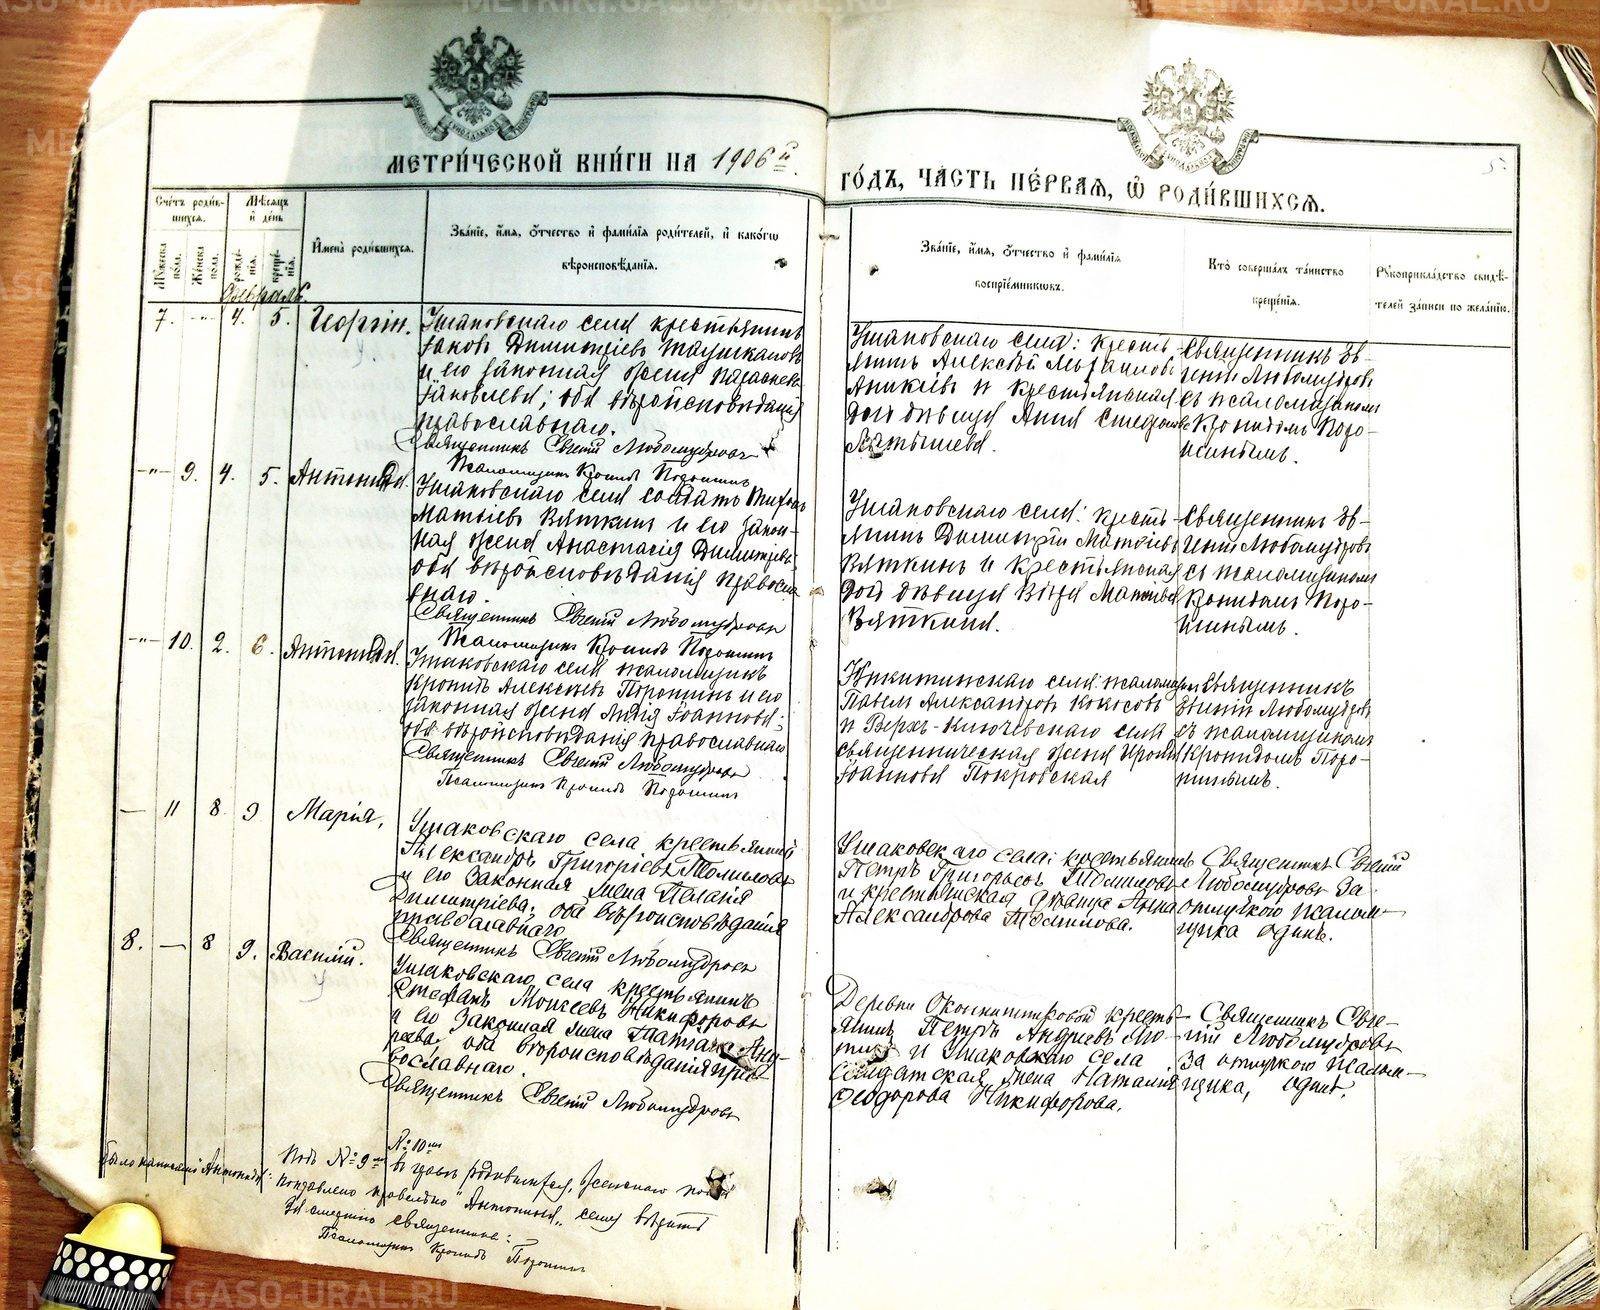 METRIKI.GASO-URAL.RU
МЕТРИ́ЧЕСКОЙ КНИ́ГИ НА 1906й
ГО́ДЪ, ЧА́СТЬ ПЕ́РВАЯ, Ѿ РОДИ́ВШИХСЯ.
5.
Сче́тъ роди́в-
шихся.
Му́жеска по́ла.
Же́нска по́ла.
Мѣ́сяцъ
и҆ де́нь
рожде́-
нія.
креще́-
нія.
И҆мена̀ роди́вшихся.
Зва́ніе, и҆́мя, ѻ҆́тчество и҆ фами́лія роди́телей, и҆ како́гѡ
вѣроисповѣ́данія.
Зва́ніе, и҆́мя, ѻ҆́тчество и҆ фами́лія
воспріе́мниковъ.
Кто̀ соверша́лъ та́инство
креще́нія.
Рукоприкла́дство свидѣ́-
телей за́писи по жела́нію.
Февраль.
7. -"- 4. 5. Георгій.
Ушаковскаго села крестьянинъ
Іаковъ Димитріевъ
и его законная жена Параскева
Іаковлева; оба вѣроисповѣданія
православнаго.
Священникъ Евгеній Любомудровъ
Псаломщикъ Кронидъ Порошин
Ушаковскаго села: кресть-
янинъ Алексѣй Михаиловъ
Аникіевъ и крестьянская
дочь дѣвица Анна
Латышева.
Священникъ Ев-
геній Любомудровъ
съ псаломщикомъ
Кронидомъ Поро-
шинымъ.
-"- 9. 4. 5. Антонина.
Ушаковскаго села солдатъ
Матѳіевъ Вяткинъ и его закон-
ная жена Анастасія Димитріева
оба вѣроисповѣданія правосла
внаго.
Священникъ Евгеній Любомудровъ
Псаломщикъ Кронидъ Порошин
Ушаковскаго села: кресть-
янинъ Димитрій Матѳіевъ
Вяткинъ и крестьянская
дочь дѣвица Вѣра Матѳіева
Вяткина.
Священникъ Ев-
геній Любомудровъ
съ псаломщикомъ
Кронидомъ Поро-
шинымъ.
-"- 10. 2. 6. Антонина.
Ушаковскаго села псаломщикъ
Кронидъ Алексѣевъ Порошинъ и его
законная жена Лидія Іоаннова;
оба вѣроисповѣданія православнаго
Священникъ Евгеній Любомудровъ
Псаломщикъ Кронидъ Порошин
Никитинскаго села: псаломщикъ
Павелъ Александровъ Кокосовъ
и Верхъ-Ключевскаго села
священническая жена
Іоаннова Покровская
Священникъ
Евгеній Любомудровъ
съ псаломщикомъ
Кронидомъ Поро-
шинымъ.
— 11 8 9 Марія,
Ушаковскаго села крестьянинъ
Александръ Григоріевъ Томиловъ
и его законная жена Пелагія
Димитріева; оба вѣроисповѣданія
православнаго
Священникъ Евгеній Любомудровъ
Ушаковскаго села: крестьянинъ
Петръ Григорьевъ Томиловъ
и крестьянская дѣвица Анна
Александрова Томилова.
Священникъ Евгеній
Любомудровъ За
отлучкою псалом-
щика одинъ.
8. — 8 9. Василій.
Ушаковскаго села крестьянинъ
Стефанъ Моисеевъ Никифоровъ
и его законная жена Татіана Анд-
реева, оба вѣроисповѣданія пра-
вославнаго.
Священникъ Евгеній Любомудровъ
Деревни Оконишниковой кресть-
янинъ Петръ Андреевъ
и Ушаковскаго села
солдатская жена Наталія
Ѳеодорова Никифорова.
Священникъ Евге-
ній Любомудровъ
За отлучкою псалом-
щика, одинъ.
№ 10мъ
Подъ № 9мъ въ графѣ родившейся, женскаго пола
было написано Антонида:
исправлено правильно "Антонина„ сему вѣрить
священника:
Псаломщикъ Кронидъ Порошин
METRIKI.GASO-URAL.RU